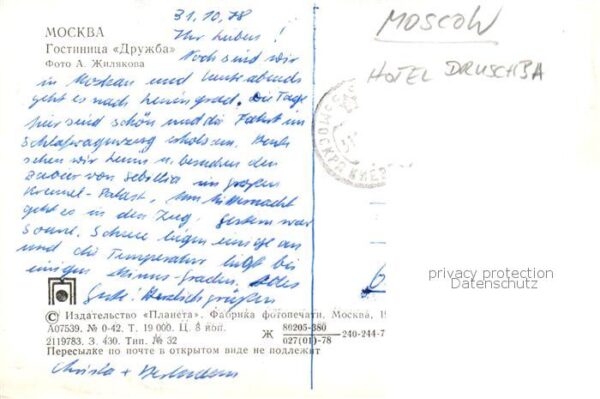 МОСКВА
Гостиница «Дружба»
Фото А. Жилякова
31.10.78
Ihr Lieben!
Noch sind wir
in Moskau und heute abend
geht es nach Leningrad. Die Tage
hier sind schön und die Fahrt im
Schlafwagenzug erholsam. Heute
sehen wir Lenin u. besuchen den
von im großen
Kreml-Palast, um Mitternacht
geht es in den Zug. Gestern war
Sonne. Schnee
und die Temperatur liegt bei
einigen Minus-Graden. Alles
Gute! Herzlich grüßen
Christa +
MOSCOW
HOTEL DRUSCHBA
МОСКВА
privacy protection
Datenschutz
© Издательство «Планета». Фабрика фотопечати, Москва, 19
А07539. № 0-42. Т. 19 000. Ц. 8 коп.
2119783. З. 430. Тип. № 32
Ж 80205-380
027(01)-78 —240-244-7
Пересылке по почте в открытом виде не подлежит